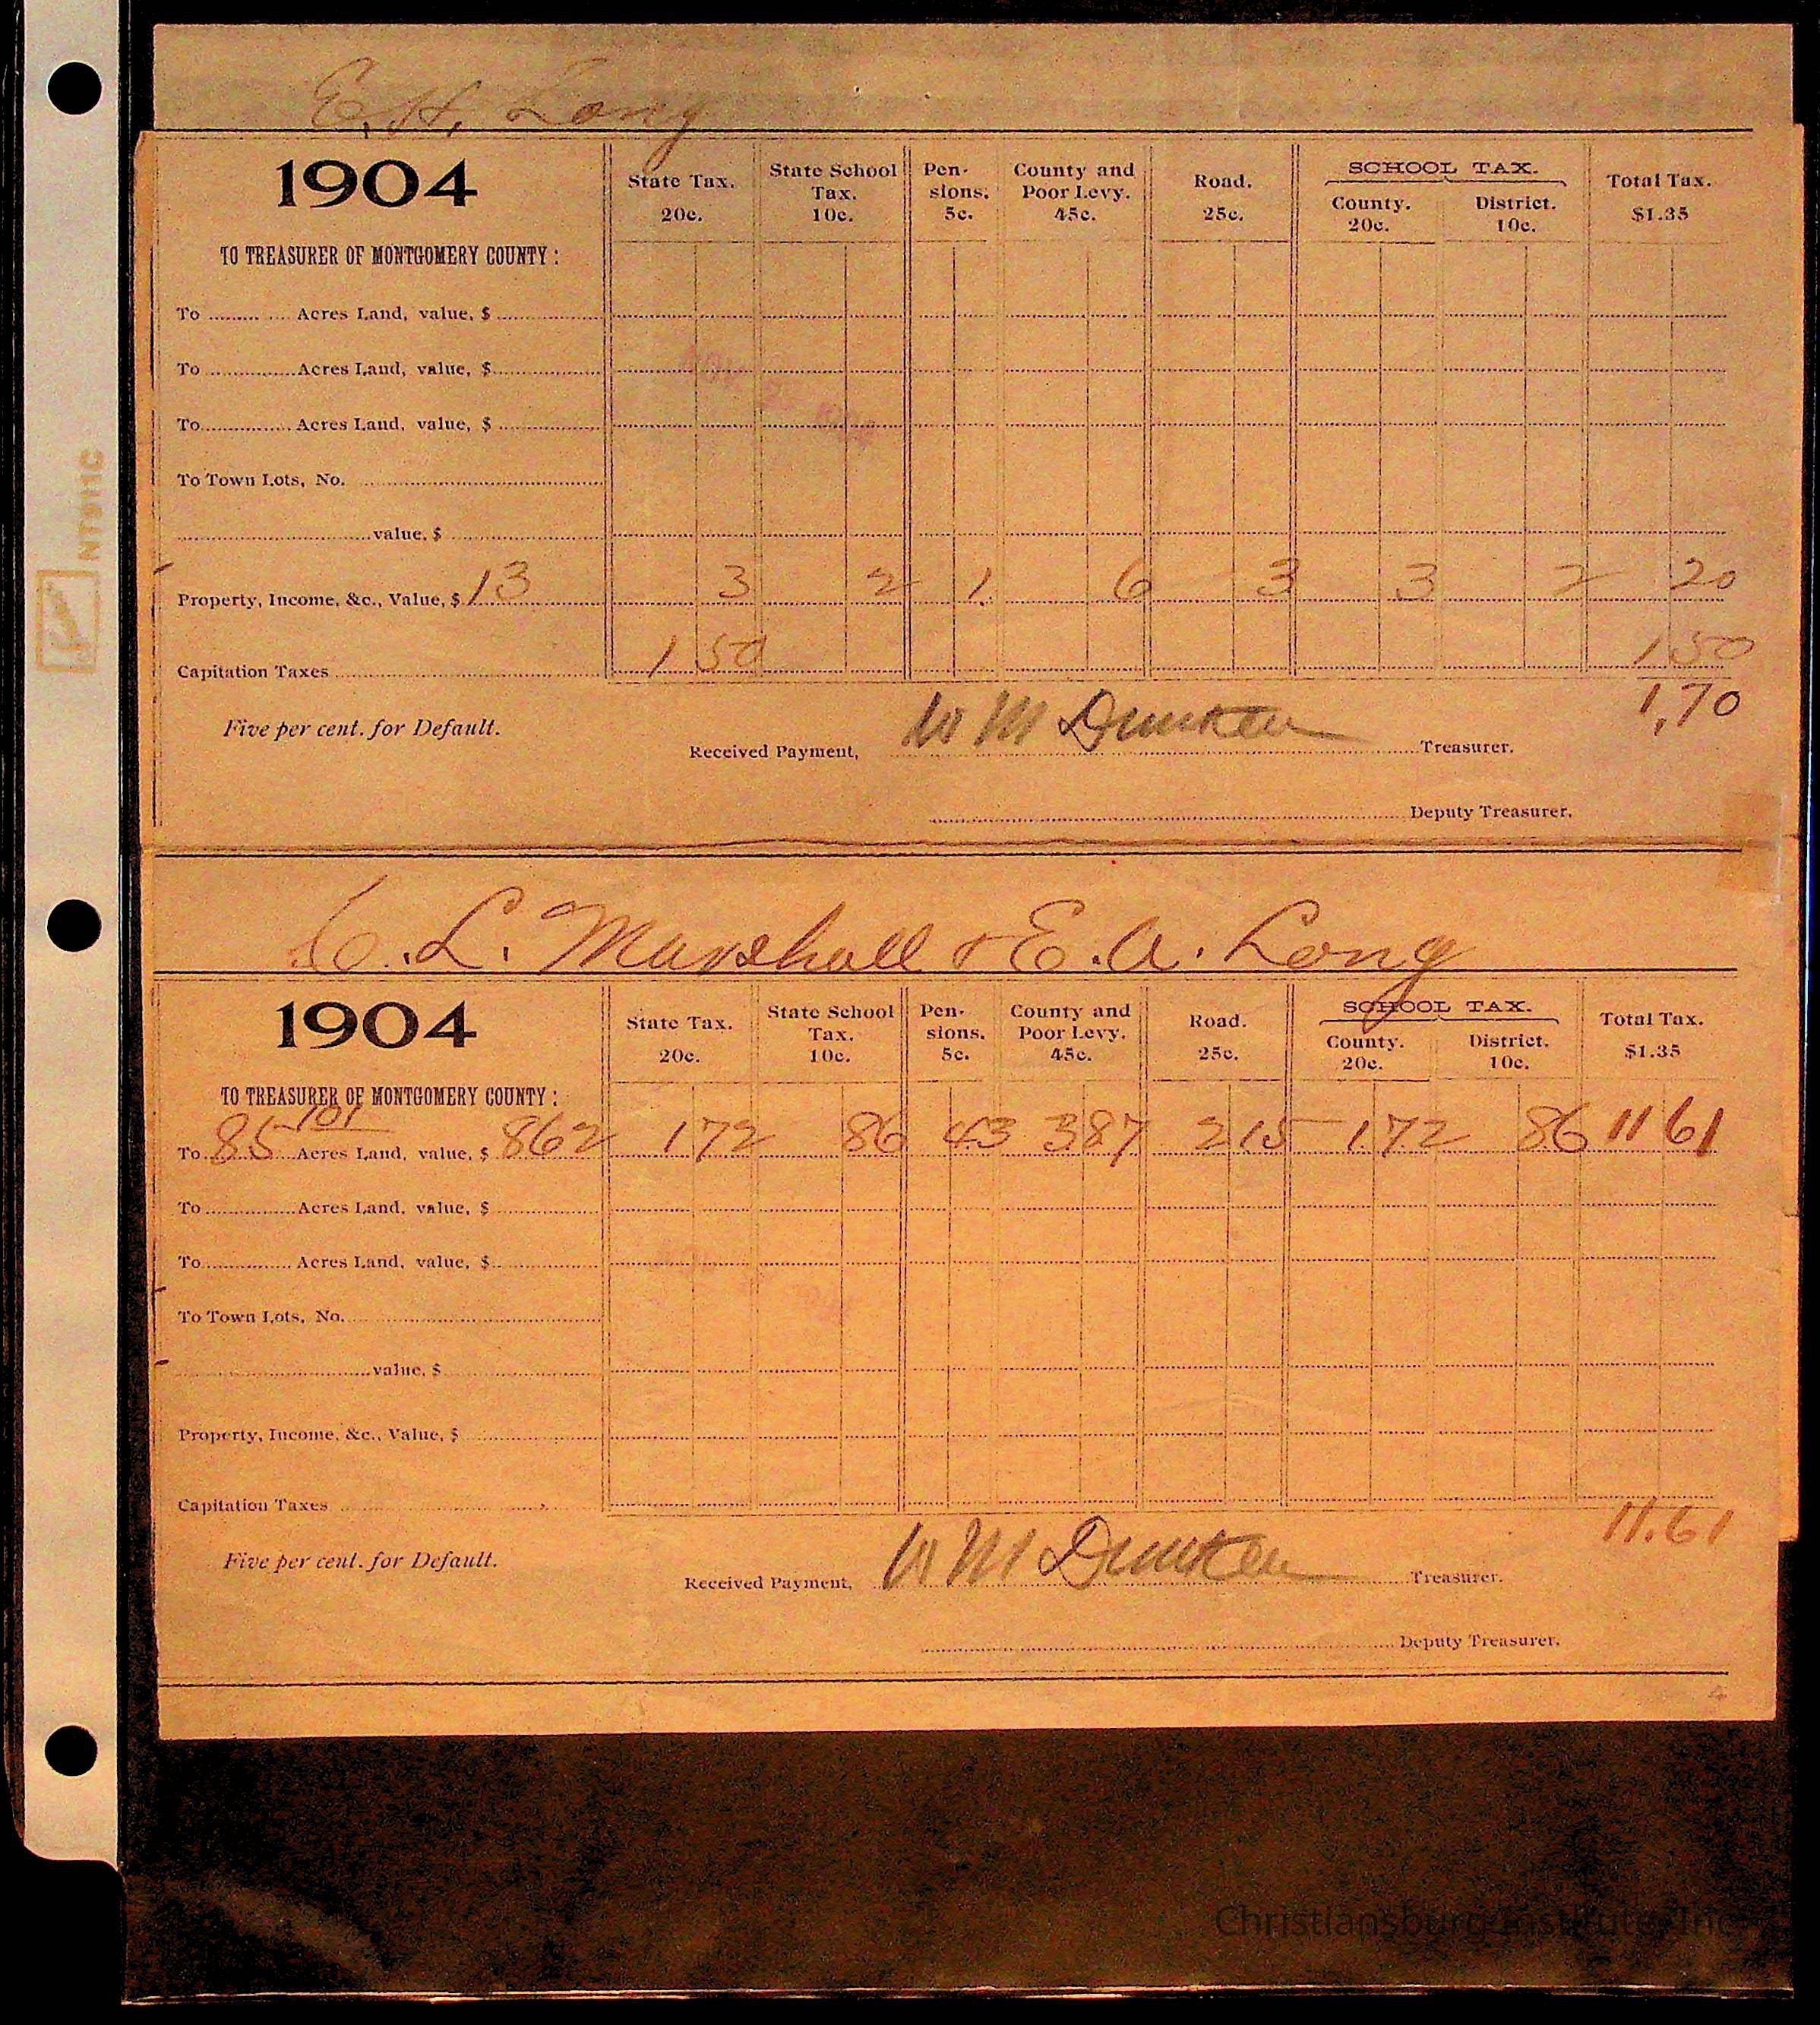 E. H. Long
1904
TO TREASURER OF MONTGOMERY COUNTY :
State Tax. 20c. State School Tax. 10c. Pen-sions. 5c. County and Poor Levy. 45c. Road. 25c. SCHOOL TAX. County. 20c. District. 10c. Total Tax. $1.35
To Acres Land, value, $
To Acres Land, value, $
To Acres Land, value, $
To Town Lots, No.
value, $
Property, Income, &c., Value, $ 13 3 2 1. 6 3 3 2 20
Capitation Taxes 1 50 1 50
1,70
Five per cent. for Default.
Received Payment, Treasurer.
Deputy Treasurer.
C. L. Marshall & E. A. Long
1904
TO TREASURER OF MONTGOMERY COUNTY :
State Tax. 20c. State School Tax. 10c. Pen-sions. 5c. County and Poor Levy. 45c. Road. 25c. SCHOOL TAX. County. 20c. District. 10c. Total Tax. $1.35
101
To 85 Acres Land, value, $ 862 1 72 86 43 3 87 2 15 1 72 86 11 61
To Acres Land, value, $
To Acres Land, value, $
To Town Lots, No.
value, $
Property, Income, &c., Value, $
Capitation Taxes
11.61
Five per cent. for Default.
Received Payment, Treasurer.
Deputy Treasurer.
Christiansburg Institute, Inc